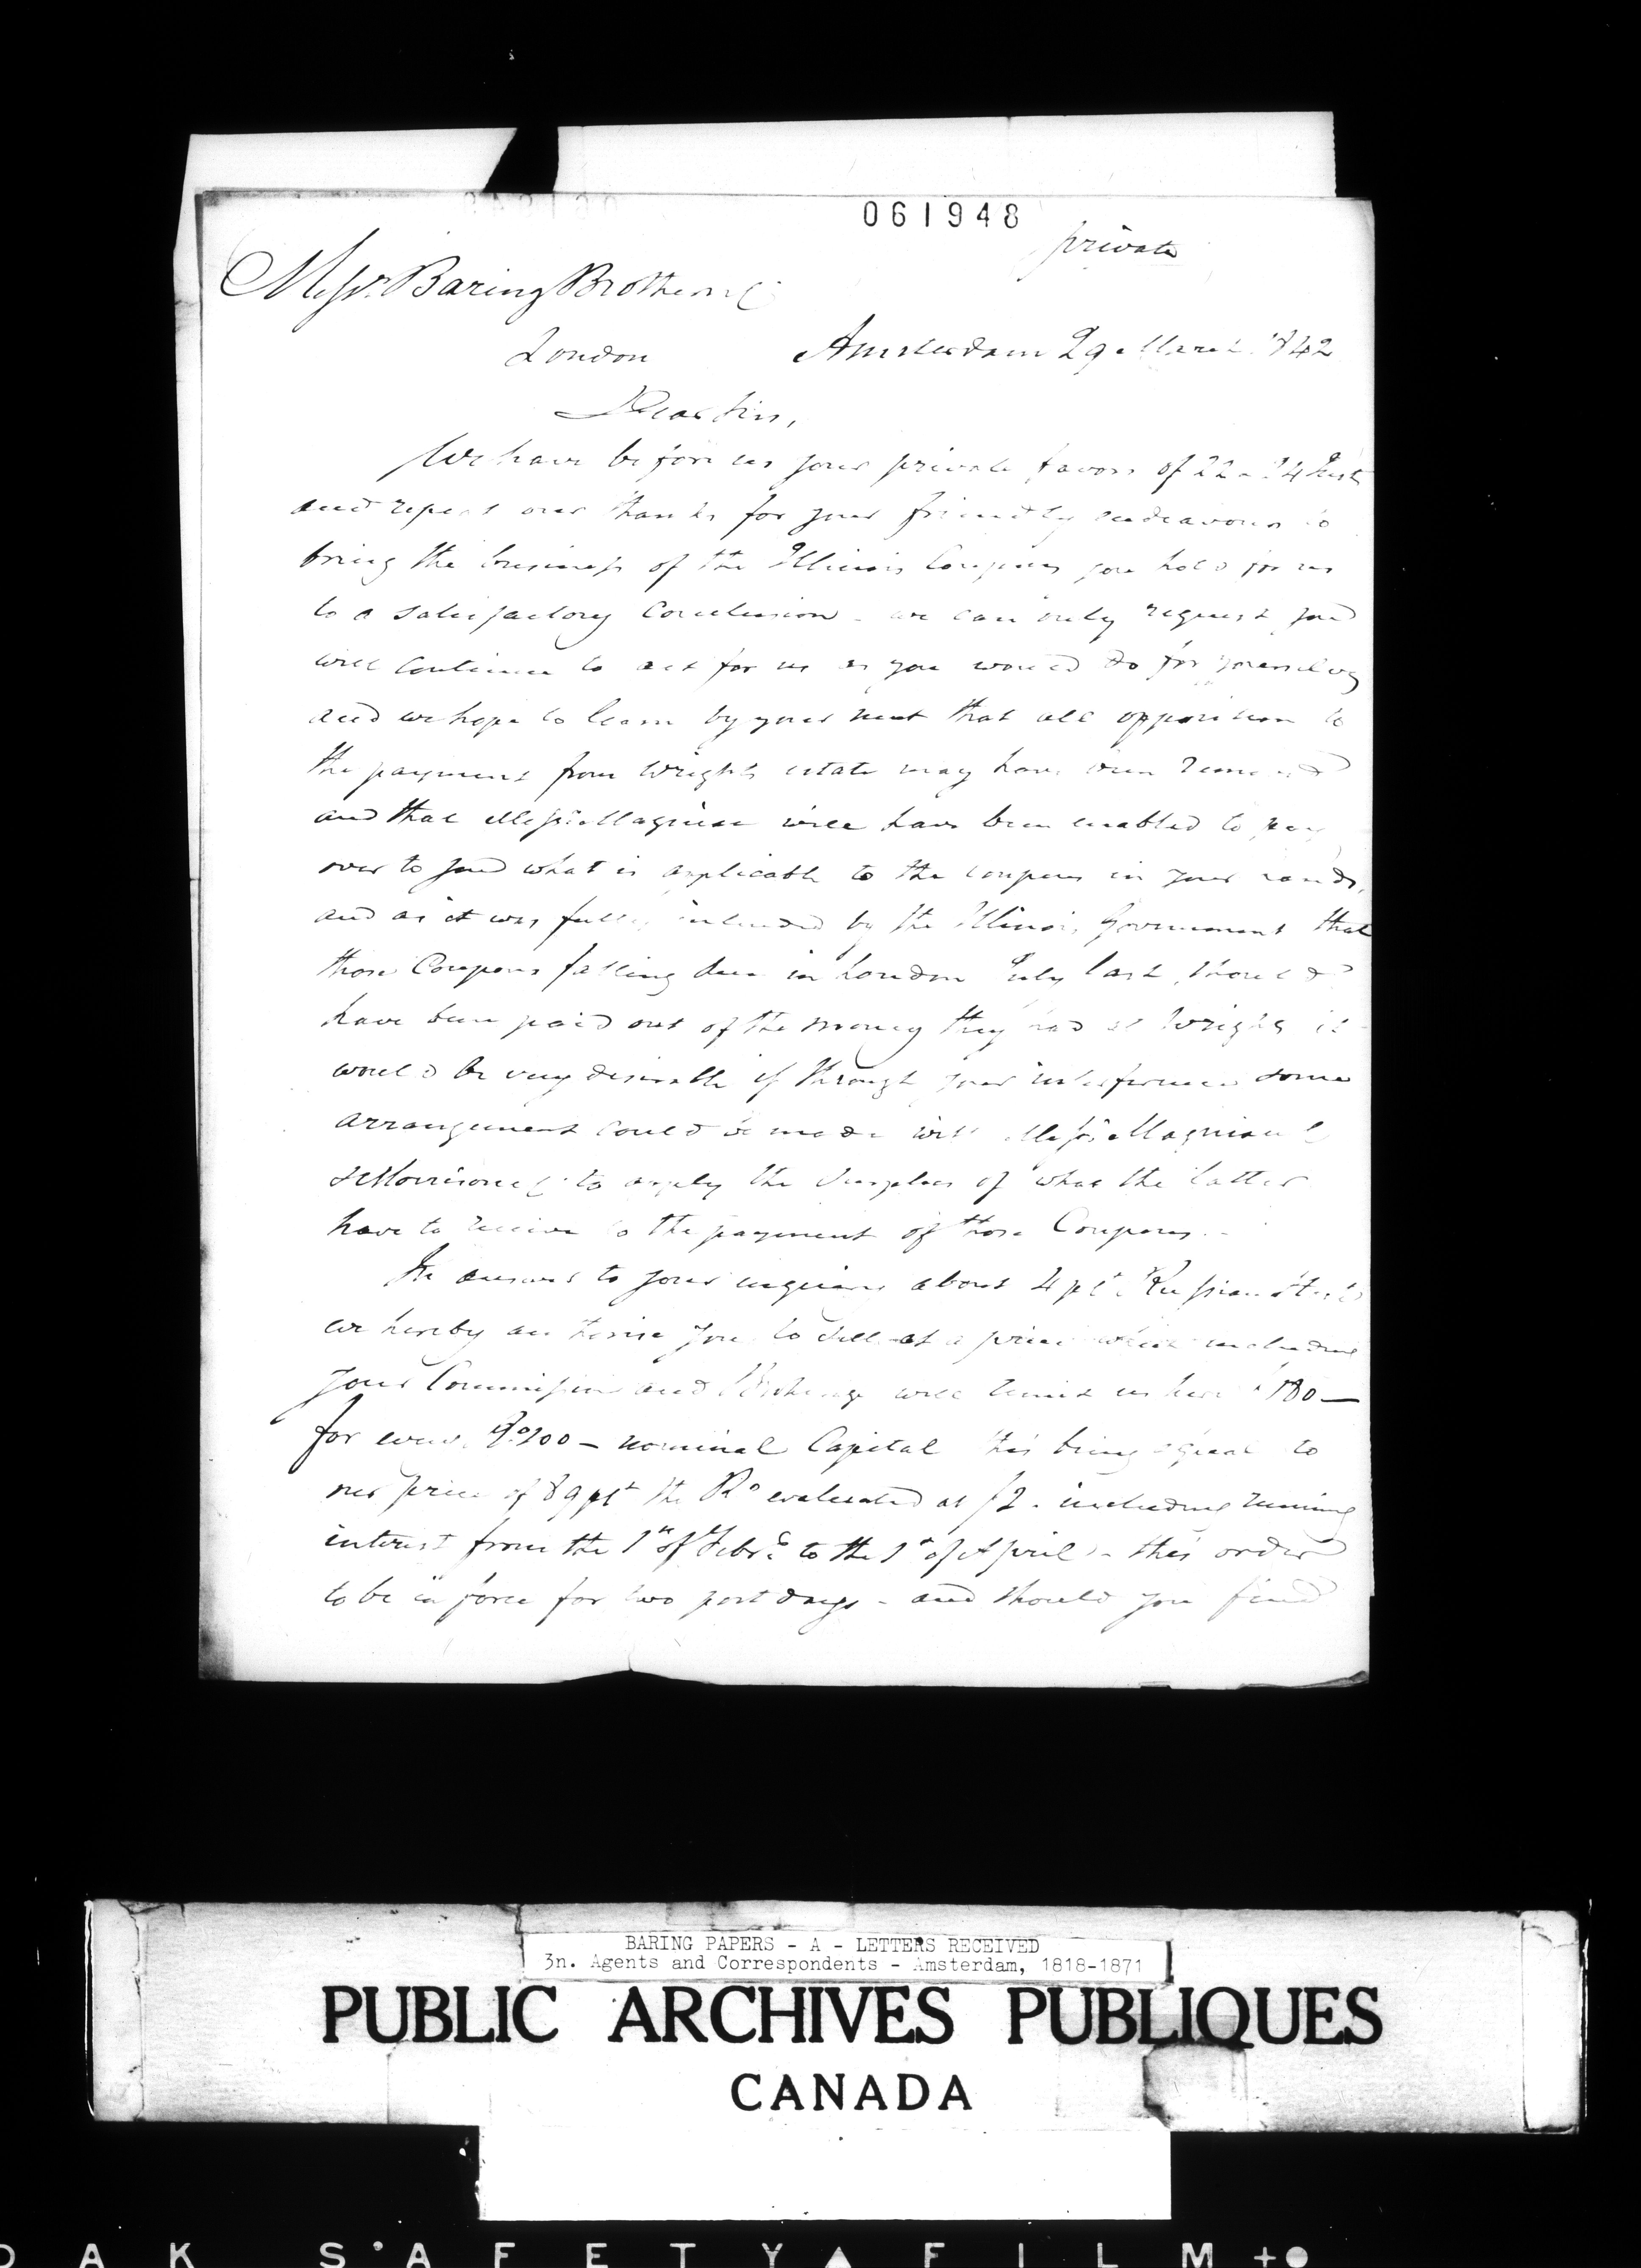 061948
private
Messrs. Baring Brothers & C
London Amsterdam 29 March 1842
Dear Sirs,
We have before us your private favors of 22 & 24 Inst
and repeat our thanks for your friendly endeavours to
bring the business of the Illinois Coupons you hold for us
to a satisfactory conclusion - we can only request you
will continue to act for us as you would do for yourselves
and we hope to learn by your next that all opposition to
the payment from Wrights estate may have been removed
and that Messrs Magniac will have been enabled to pay
over to you what is applicable to the coupons in your hands,
and as it was fully intended by the Illinois Government that
those Coupons falling due in London July last, should
have been paid out of the money they had at Wrights it
would be very desirable if through your interference some
arrangement could be made with Messrs Magniac &
& Morrison & to apply the surplus of what the latter
have to receive to the payment of those Coupons. -
In answer to your inquiry about 4 pCt Russian Stock
we hereby authorise you to sell at a price which including
your Commission and Exchange will remit us here 180 —
for every Ro 100 — nominal Capital this being equal to
our price of 89 pCt the Ro evaluated at f2. including running
interest from the 1st of Feby to the 1st of April - this order
to be in force for two post days - and should you find
BARING PAPERS - A - LETTERS RECEIVED
3n. Agents and Correspondents - Amsterdam, 1818-1871
PUBLIC ARCHIVES PUBLIQUES
CANADA
DAK S'AFETY▲FILM+●